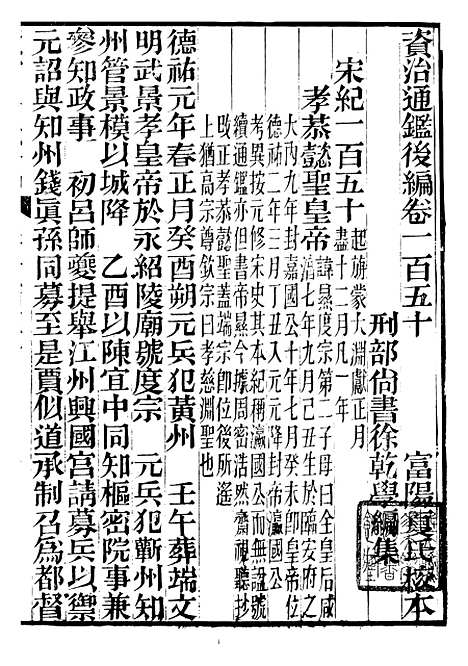 資治通鑑後編卷一百五十
富陽夏氏校本
刑部尚書徐乾學編集
宋紀一百五十
起旃蒙大淵獻正月
盡十二月凡一年
孝恭懿聖皇帝
諱㬎度宗第二子母曰全皇后咸
淳七年九月己丑生於臨安府之
大內九年封嘉國公十年七月癸未卽皇帝位
德祐二年三月丁丑入元元降封瀛國公
考異按條宋史其本紀稱瀛國公而無謚號
續通鑑亦但書帝㬎今據周密浩然齋視聽抄
改正孝恭懿聖蓋端宗卽位後所遙
上猶高宗尊欽宗曰孝慈淵聖也
德祐元年春正月癸酉朔元兵犯黃州　壬午葬端文
明武景孝皇帝於永紹陵廟號度宗　元兵犯蘄州知
州管景模以城降　乙酉以陳宜中同知樞密院事兼
參知政事　初呂師夔提舉江州興國宮請募兵以禦
元詔與知州錢眞孫同募至是賈似道承制召爲都督